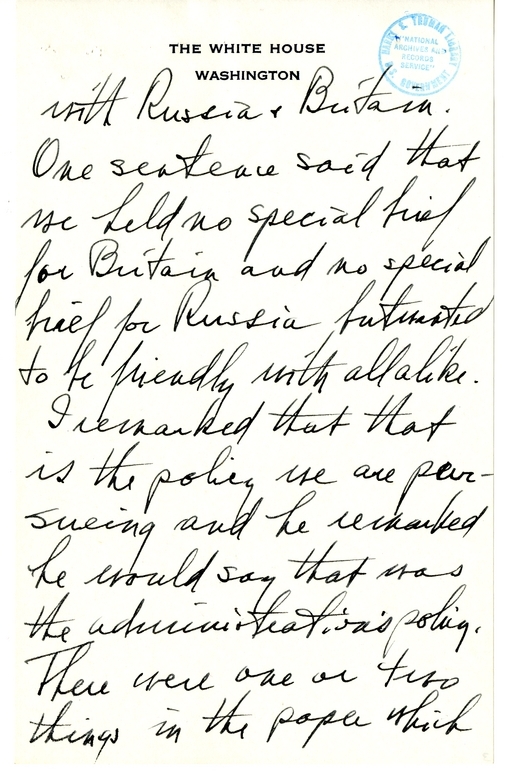 THE WHITE HOUSE
WASHINGTON
HARRY S. TRUMAN LIBRARY
"NATIONAL
ARCHIVES AND
RECORDS
SERVICE"
U.S. GOVERNMENT
with Russia & Britain.
One sentence said that
we held no special brief
for Britain and no special
brief for Russia but wanted
to be friendly with all alike.
I remarked that that
is the policy we are per-
sueing and he remarked
he would say that was
the administration's policy.
There were one or two
things in the paper which